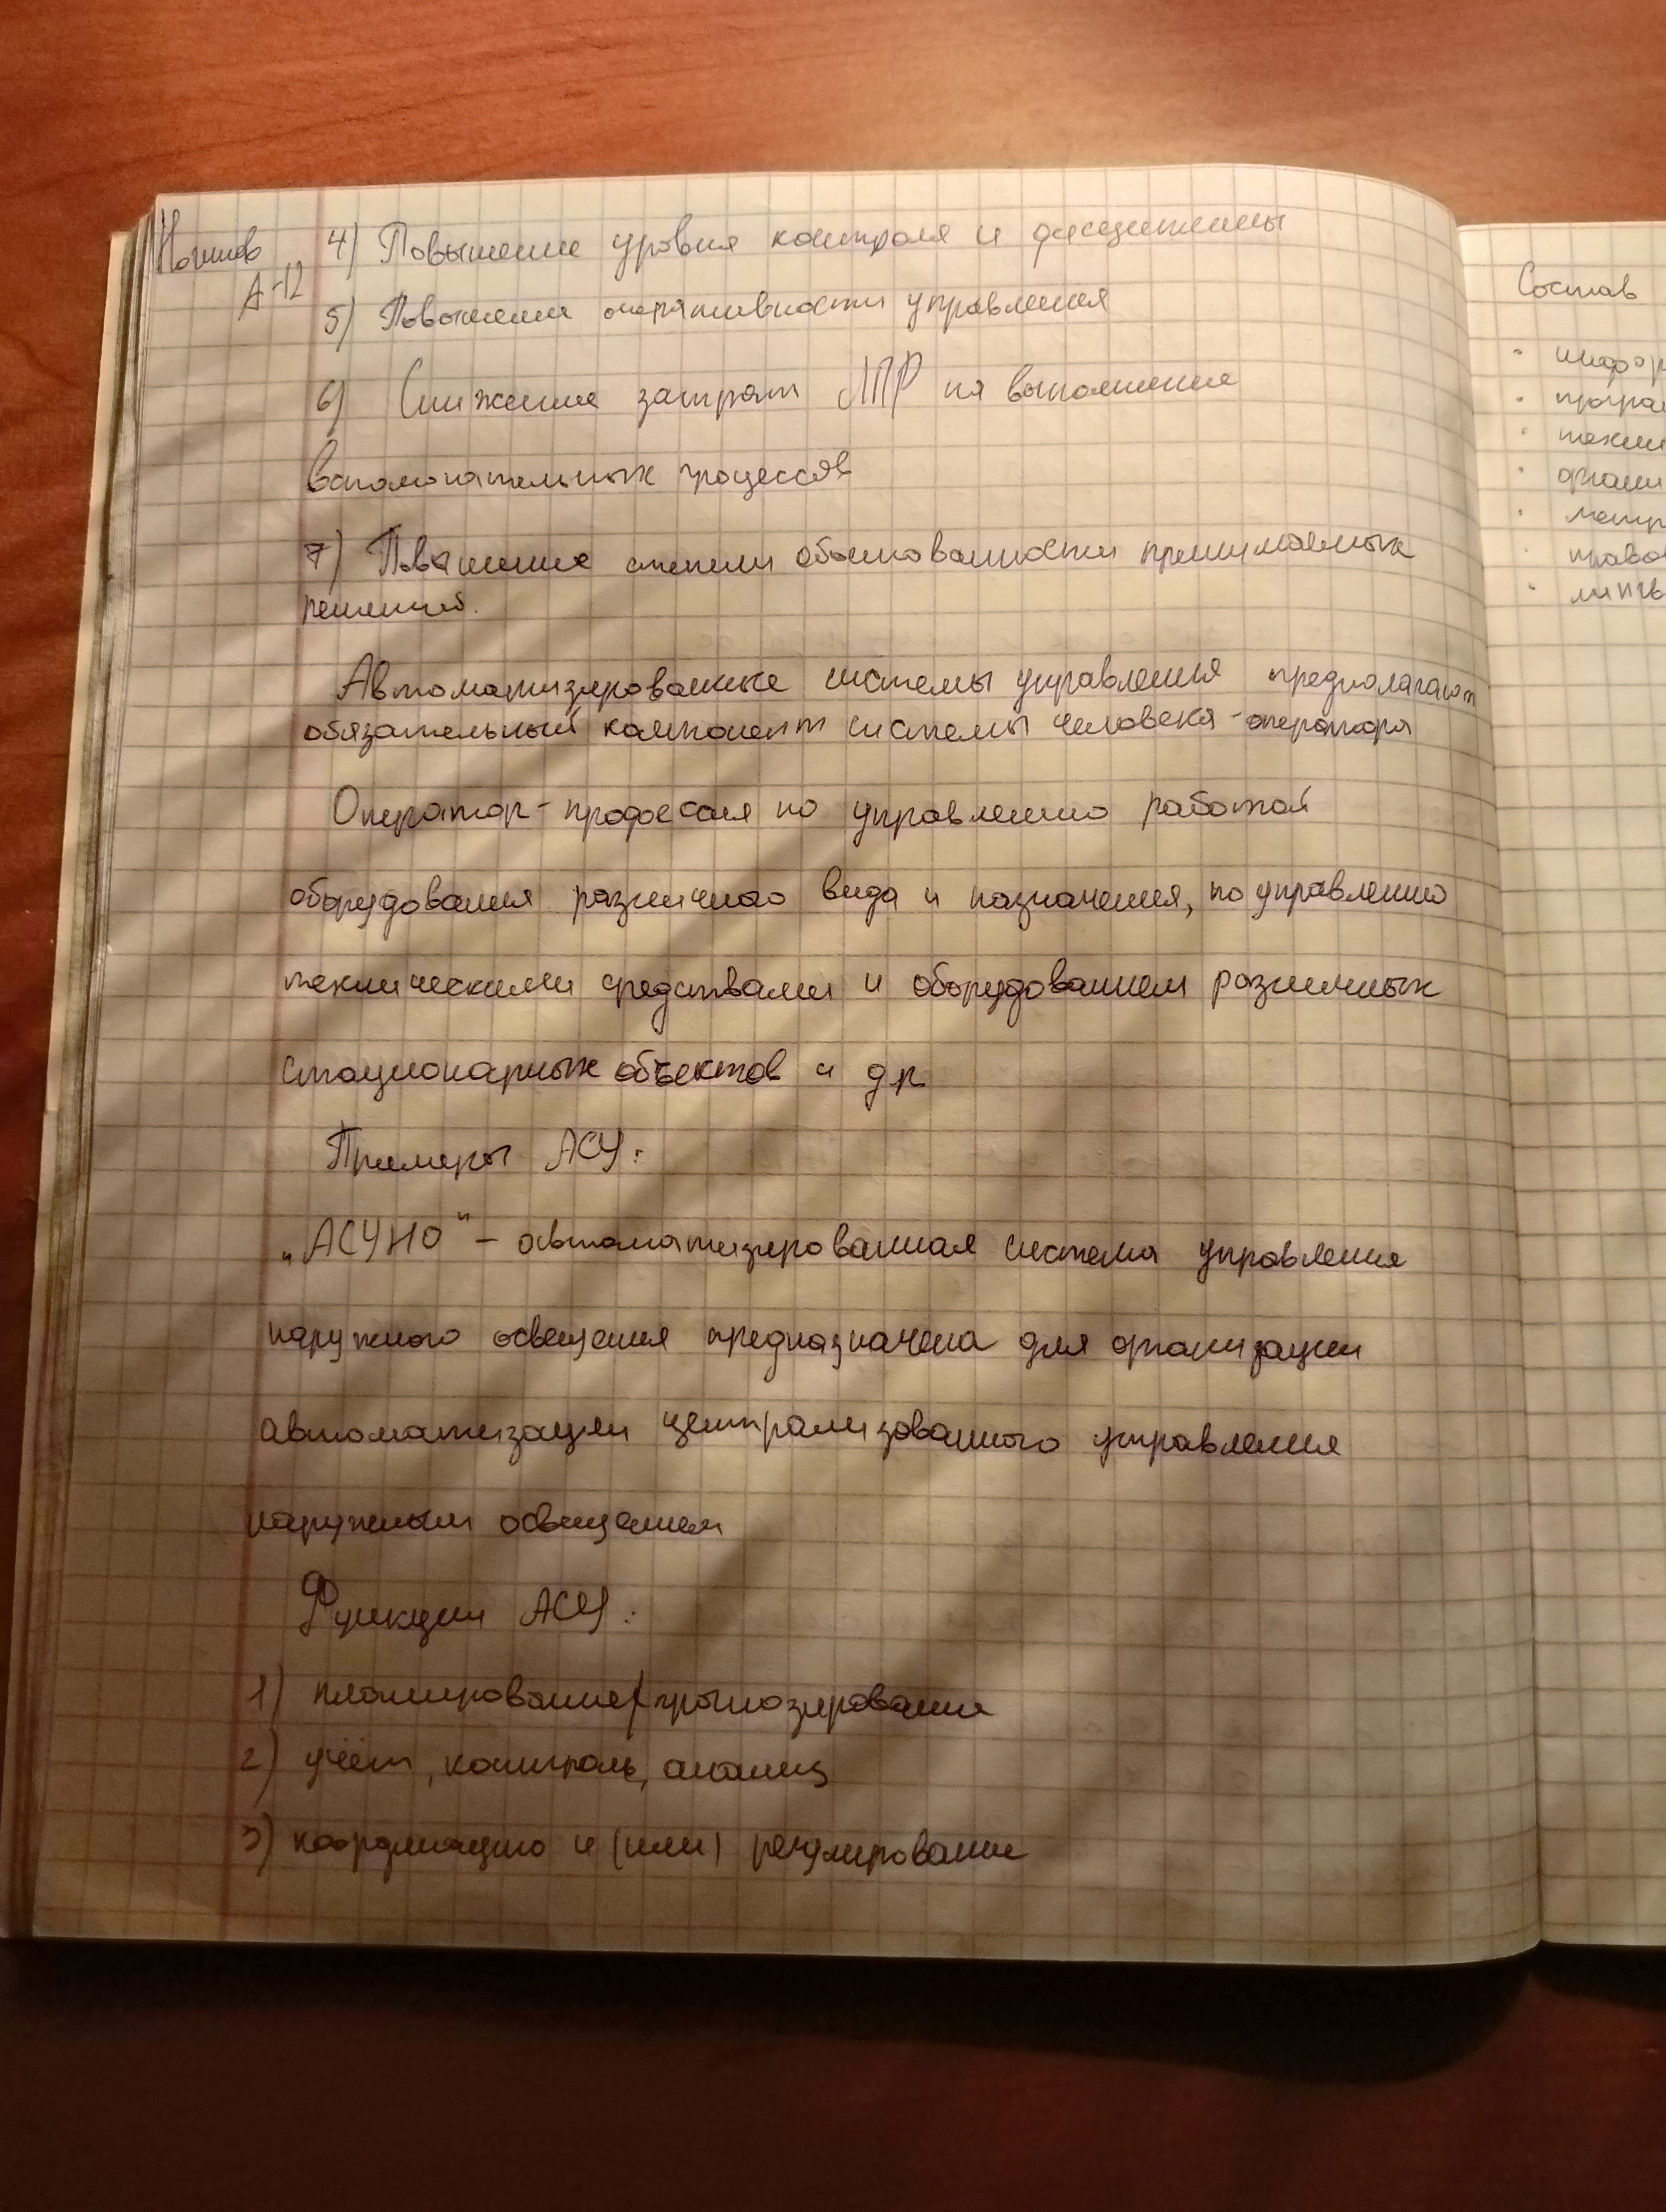 А-12
4) Повышение уровня контроля и дисциплины
5) Повышение оперативности управления
6) Снижение затрат ЛПР на выполнение
вспомогательных процессов
7) Повышение степени обоснованности принимаемых
решений.
Автоматизированные системы управления предполагают
обязательный компонент системы человека-оператора
Оператор - профессия по управлению работой
оборудования различного вида и назначения, по управлению
техническими средствами и оборудованием различных
стационарных объектов и др
Примеры АСУ:
„АСУНО“ – автоматизированная система управления
наружного освещения предназначена для организации
автоматизации централизованного управления
наружным освещением
Функции АСУ:
1) планирование/прогнозирование
2) учёт, контроль, анализ
3) координацию и (или) регулирование
Состав